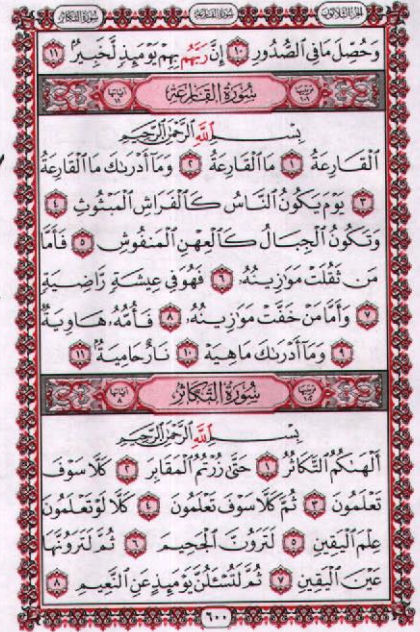 الجزء الثلاثون سورة القارعة سورة التكاثر
وَحُصِّلَ مَا فِي ٱلصُّدُورِ ١٠ إِنَّ رَبَّهُم بِهِمْ يَوْمَئِذٍ لَّخَبِيرٌ ١١
ترتيبها ١٠١ سُورَةُ القَارِعَة آياتها ١١
بِسْمِ ٱللَّهِ ٱلرَّحْمَٰنِ ٱلرَّحِيمِ
ٱلْقَارِعَةُ ١ مَا ٱلْقَارِعَةُ ٢ وَمَآ أَدْرَىٰكَ مَا ٱلْقَارِعَةُ
٣ يَوْمَ يَكُونُ ٱلنَّاسُ كَٱلْفَرَاشِ ٱلْمَبْثُوثِ ٤
وَتَكُونُ ٱلْجِبَالُ كَٱلْعِهْنِ ٱلْمَنفُوشِ ٥ فَأَمَّا
مَن ثَقُلَتْ مَوَٰزِينُهُۥ ٦ فَهُوَ فِي عِيشَةٍ رَّاضِيَةٍ
٧ وَأَمَّا مَنْ خَفَّتْ مَوَٰزِينُهُۥ ٨ فَأُمُّهُۥ هَاوِيَةٌ
٩ وَمَآ أَدْرَىٰكَ مَا هِيَهْ ١٠ نَارٌ حَامِيَةٌ ١١
ترتيبها ١٠٢ سُورَةُ التَّكَاثُر آياتها ٨
بِسْمِ ٱللَّهِ ٱلرَّحْمَٰنِ ٱلرَّحِيمِ
أَلْهَىٰكُمُ ٱلتَّكَاثُرُ ١ حَتَّىٰ زُرْتُمُ ٱلْمَقَابِرَ ٢ كَلَّا سَوْفَ
تَعْلَمُونَ ٣ ثُمَّ كَلَّا سَوْفَ تَعْلَمُونَ ٤ كَلَّا لَوْ تَعْلَمُونَ
عِلْمَ ٱلْيَقِينِ ٥ لَتَرَوُنَّ ٱلْجَحِيمَ ٦ ثُمَّ لَتَرَوُنَّهَا
عَيْنَ ٱلْيَقِينِ ٧ ثُمَّ لَتُسْـَٔلُنَّ يَوْمَئِذٍ عَنِ ٱلنَّعِيمِ ٨
٦٠٠